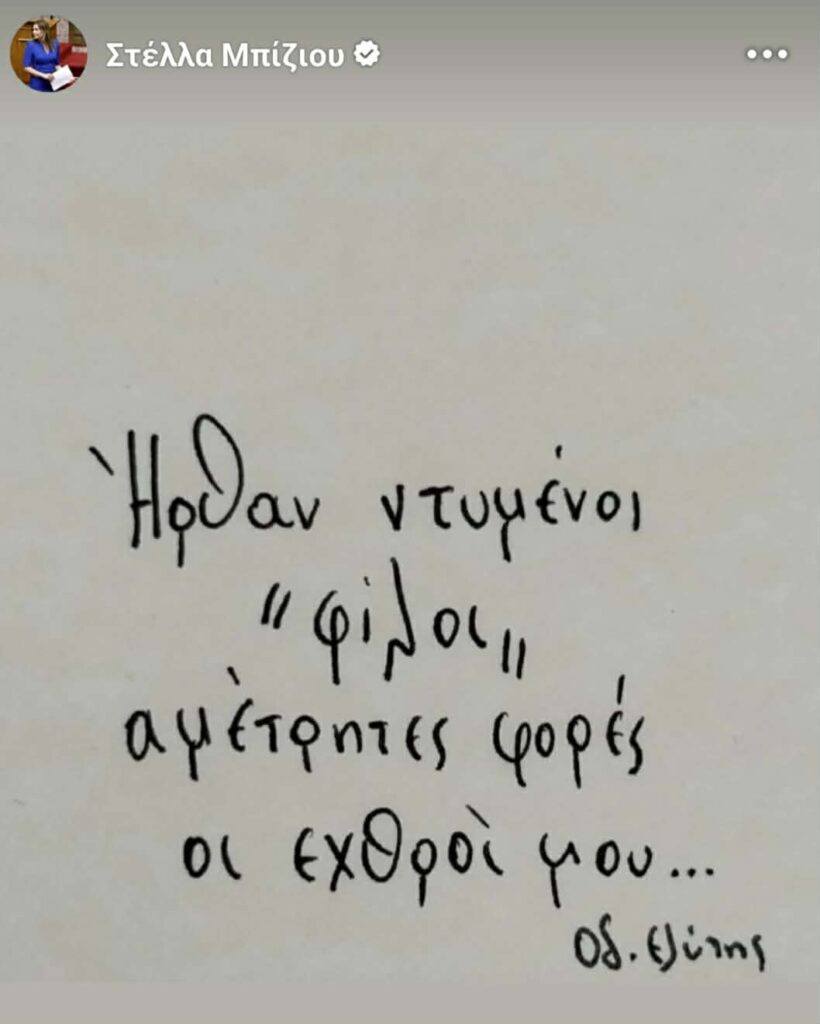 Στέλλα Μπίζιου
Ήρθαν ντυμένοι
"φίλοι"
αμέτρητες φορές
οι εχθροί μου...
Οδ. Ελύτης